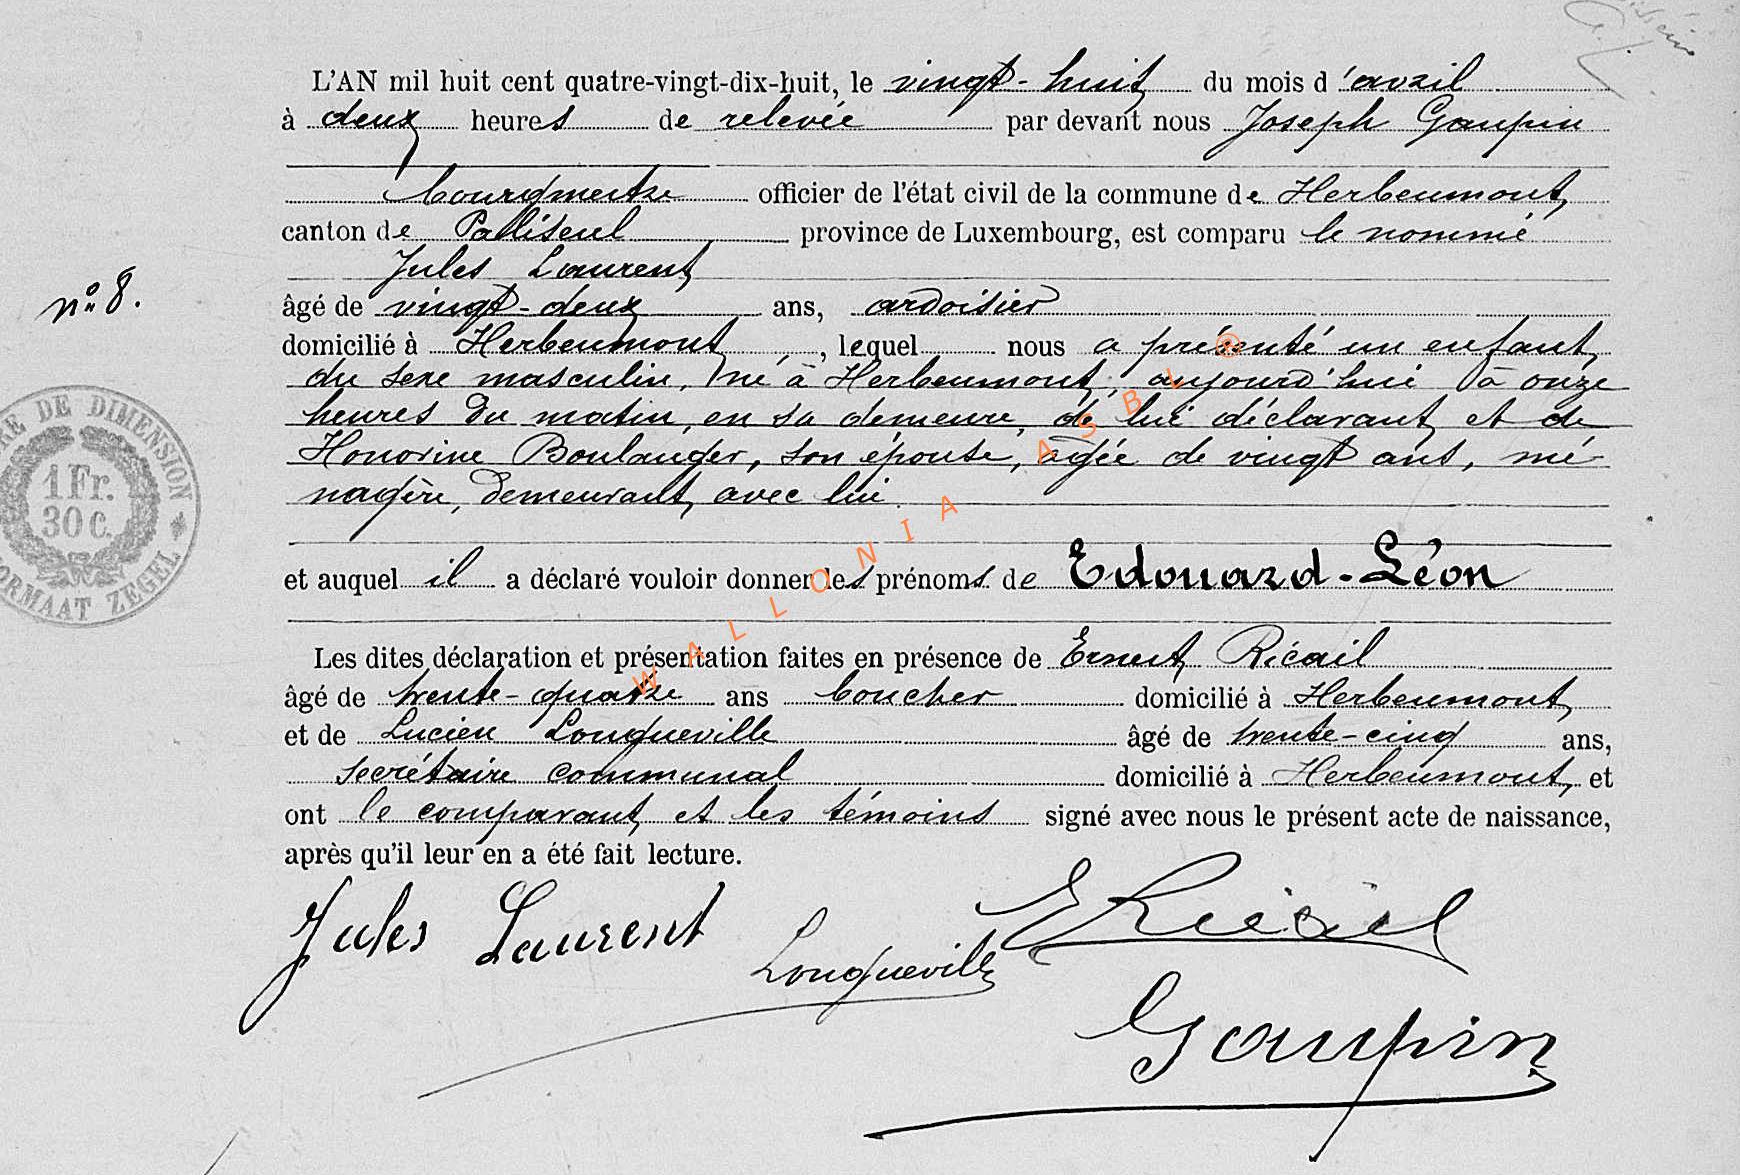 L'AN mil huit cent quatre-vingt-dix-huit, le vingt-huit du mois d'avril
à deux heures de relevée par devant nous Joseph Gaupin
bourgmestre officier de l'état civil de la commune de Herbeumont,
canton de Palliseul province de Luxembourg, est comparu le nommé
Jules Laurent
n° 8.
âgé de vingt-deux ans, ardoisier
domicilié à Herbeumont, lequel nous a présenté un enfant
du sexe masculin, né à Herbeumont, aujourd'hui à onze
heures du matin, en sa demeure, de lui déclarant et de
Honorine Boulanger, son épouse, âgée de vingt ans, mé-
nagère, demeurant avec lui
et auquel il a déclaré vouloir donner les prénoms de Edouard-Léon
Les dites déclaration et présentation faites en présence de Ernest Ricail
âgé de trente-quatre ans boucher domicilié à Herbeumont,
et de Lucien Longueville âgé de trente-cinq ans,
secrétaire communal domicilié à Herbeumont, et
ont le comparant et les témoins signé avec nous le présent acte de naissance,
après qu'il leur en a été fait lecture.
Jules Laurent
Longueville
E Ricail
Gaupin
RE DE DIMENSION
1 Fr.
30 C.
ORMAAT ZEGEL
WALLONIA ASBL ®